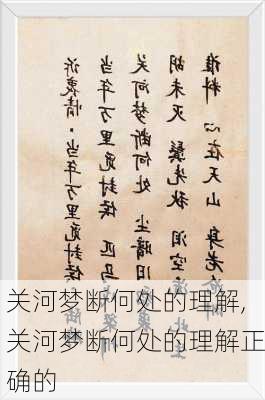 诉衷情·当年万里觅封侯
当年万里觅封侯 匹马
关河梦断何处 尘暗旧
胡未灭 鬓先秋 泪空
谁料 心在天山 身老
关河梦断何处的理解,
关河梦断何处的理解正
确的